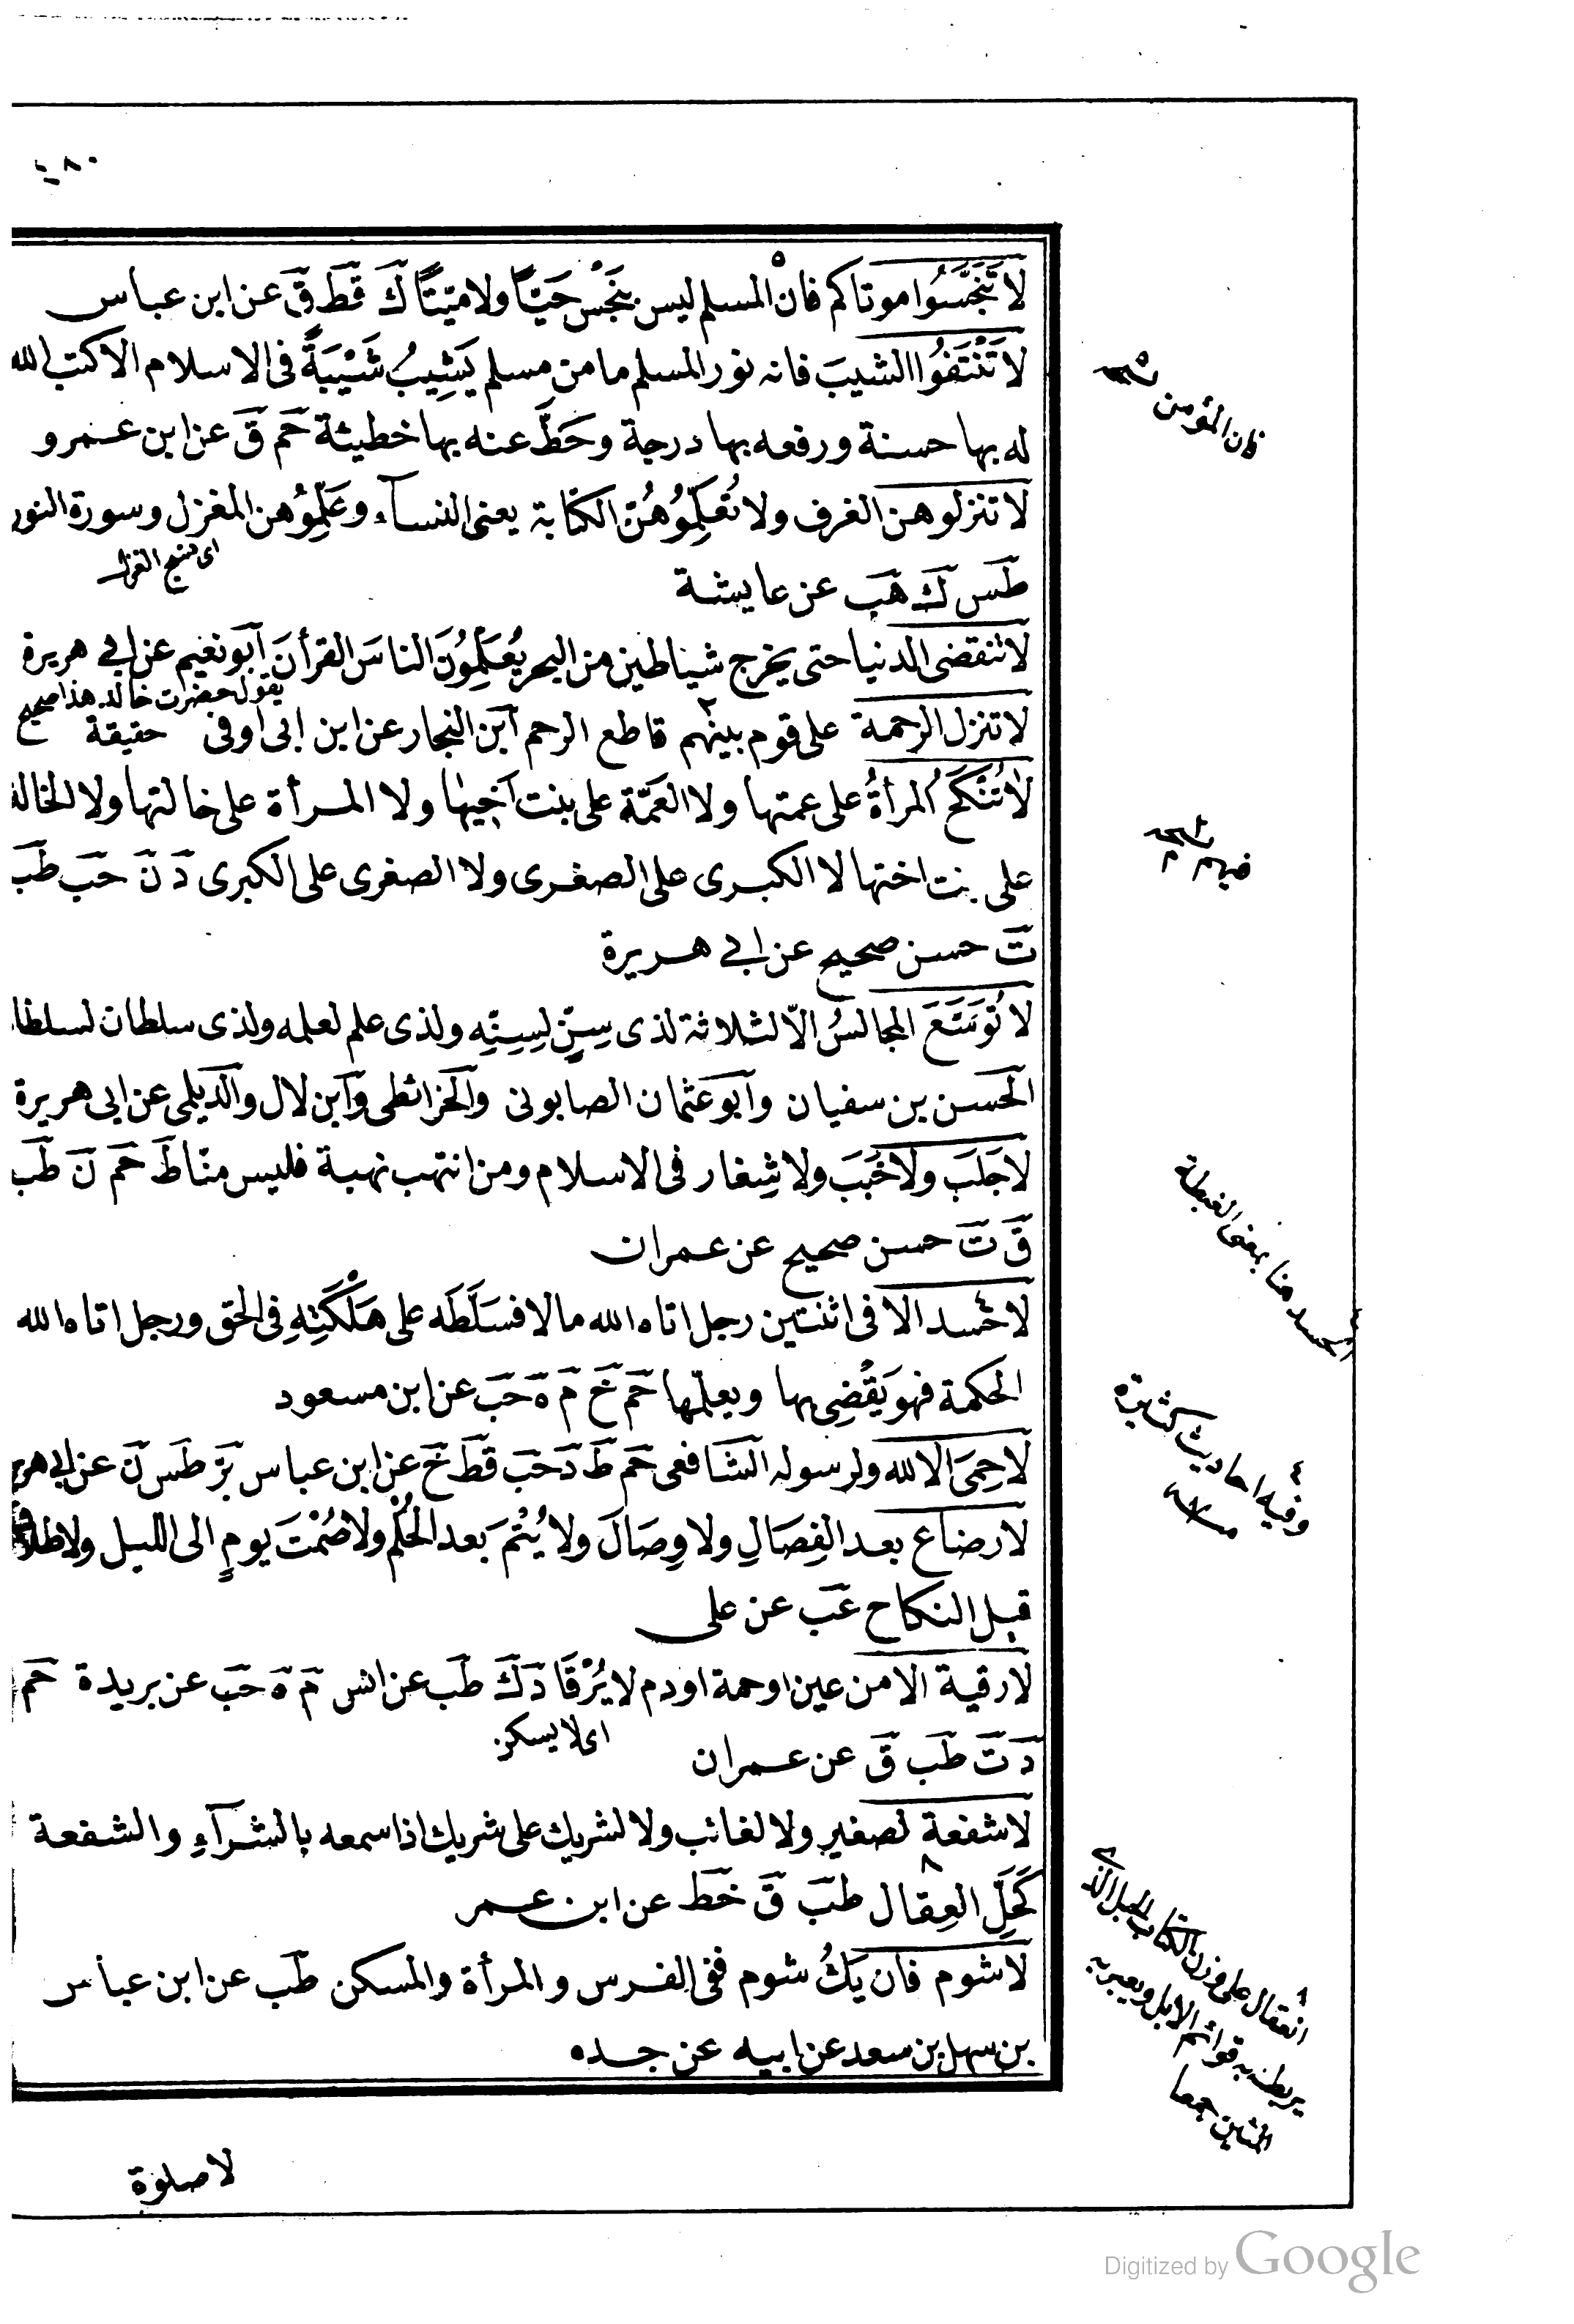 ٤٨٠
لا تُنَجِّسُوا موتاكم فان المسلم ليس بنَجَس حَيًّا ولا ميّتًا كَ قَطَ قَ عن ابن عباس
لا تَنْتَفُوا الشيبَ فانه نور المسلم ما من مسلم يَشِيبُ شَيْبَةً فى الاسلام الا كتب الله
له بها حسنة ورفعه بها درجة وحَطَّ عنه بها خطيئة حَم قَ عن ابن عمرو
لا تنزلوهن الغرف ولا تُعَلِّمُوُهُنّ الكتابة يعنى النسآء وعَلِّمُوُهن المغزل وسورة النور
اى نسج الغزل
طَس كَ هَب عن عايشة
لا تنقضى الدنيا حتى يخرج شياطين من البحر يُعَلِّمُونَ الناسَ القرأنَ آبو نعيم عن ابى هريرة
يقول حضرات خالد هذا صحيح
لا تنزل الرحمة على قوم بينهم ٢ قاطع الرحم آبن النجار عن ابن ابى اوفى حقيقة
لا تُنْكَحُ المرأةُ على عمتها ولا العَمّة على بنت آخيها ولا المرأة على خالتها ولا الخالة
على بنت اختها لا الكبرى على الصغرى ولا الصغرى على الكبرى دَ نَ حَب طَب
تَ حسن صحيح عن ابى هريرة
لا تُوَسَّعَ المجالسُ الّا لثلاثة لذى سِنٍّ لِسِنِّه ولذى علم لعلمه ولذى سلطان لسلطا
الحَسن بن سفيان وآبو عثمان الصابونى والخَرائطى وآبن لال والدَيلمى عن ابى هريرة
لا جَلَبَ ولا جَنَبَ ولا شِغار فى الاسلام ومن انتهب نهبة فليس منّا طَ حَم نَ طَب
قَ تَ حسن صحيح عن عمران
لا حسد ٤ الا فى اثنتين رجل اتاه الله مالا فسَلَّطَه على هَلَكَتِهِ فى الحق ورجل اتاه الله
الحكمة فهو يَقْضِى بها ويعلّمها حَم خَ مَ هَ حَب عن ابن مسعود
لا حِمَىَ الا لله ولرسوله الشَافعى حَم طَ دَ حَب قَطَ خَ عن ابن عباس بَز طَس نَ عن ابى هر
لا رضاع بعد الفِصَالِ ولا وِصَالَ ولا يُتْمَ بعد الحُلُم ولا صُمْتَ يومٍ الى الليل ولا طلاق
قبل النكاح عَب عن على
لا رقية الا من عين او حمة او دم لا يُرْقَا دَ كَ طَب عن انس مَ هَ حَب عن بريدة حَم
اى لا يسكن
دَ تَ طَب قَ عن عمران
لا شفعة لصغير ولا لغائب ولا لشريك على شريك اذا سمعه بالشرآء والشفعة
كَحَلِّ العِقال ٨ طَب قَ خَط عن ابن عمر
لا شوم فان يكُ شوم ففى الفرس والمرأة والمسكن طَب عن ابن عباس
بن سهل بن سعد عن ابيه عن جده
لا صلوة
فان المؤمن
فيهم
الحسد هنا بمعنى الغبطة
٤ وفيه احاديث كثيرة
٨ العقال على وزن الكتاب الحبل الذى
يربط به قوائم الابل ويعبر به
Digitized by Google